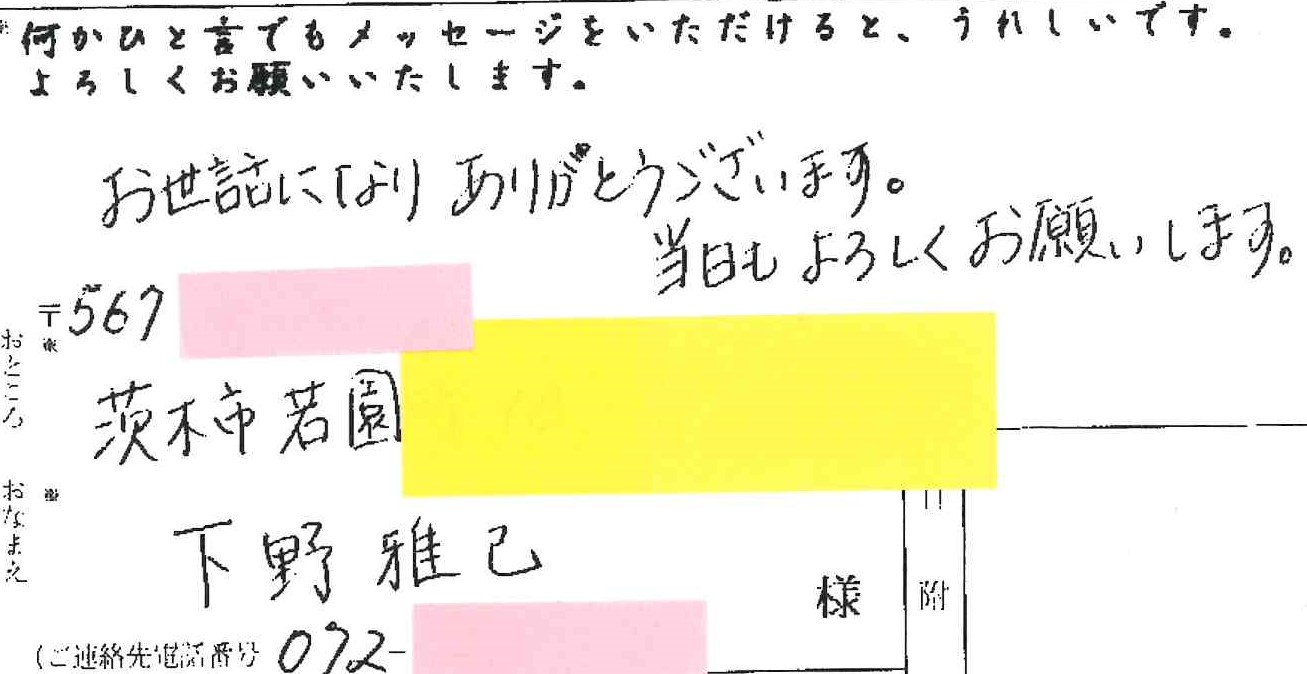 ※何かひと言でもメッセージをいただけると、うれしいです。
よろしくお願いいたします。
お世話になり ありがとうございます。
当日も よろしくお願いします。
〒567
※
おところ
茨木市若園
おなまえ
※
下野 雅己
様
日附
(ご連絡先電話番号 072-